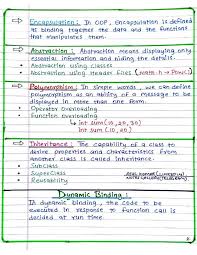 Encapsulation : In OOP, Encapsulation is defined
as binding together the data and the functions
that manipulates them.
Abstraction : Abstraction means displaying only
essential information and hiding the details.
• Abstraction using classes
• Abstraction using Header Files (math.h → pow())
Polymorphism : In simple words, we can define
polymorphism as an ability of a message to be
displayed in more than one form.
• Operator Overloading
• Function Overloading
int sum (10, 20, 30)
int sum (10, 20)
Inheritance : The capability of a class to
derive properties and characteristics from
another class is called Inheritance.
• Sub Class
• Super Class
• Reusability
Dynamic Binding :
In dynamic binding, the code to be
executed in response to function call is
decided at run time.